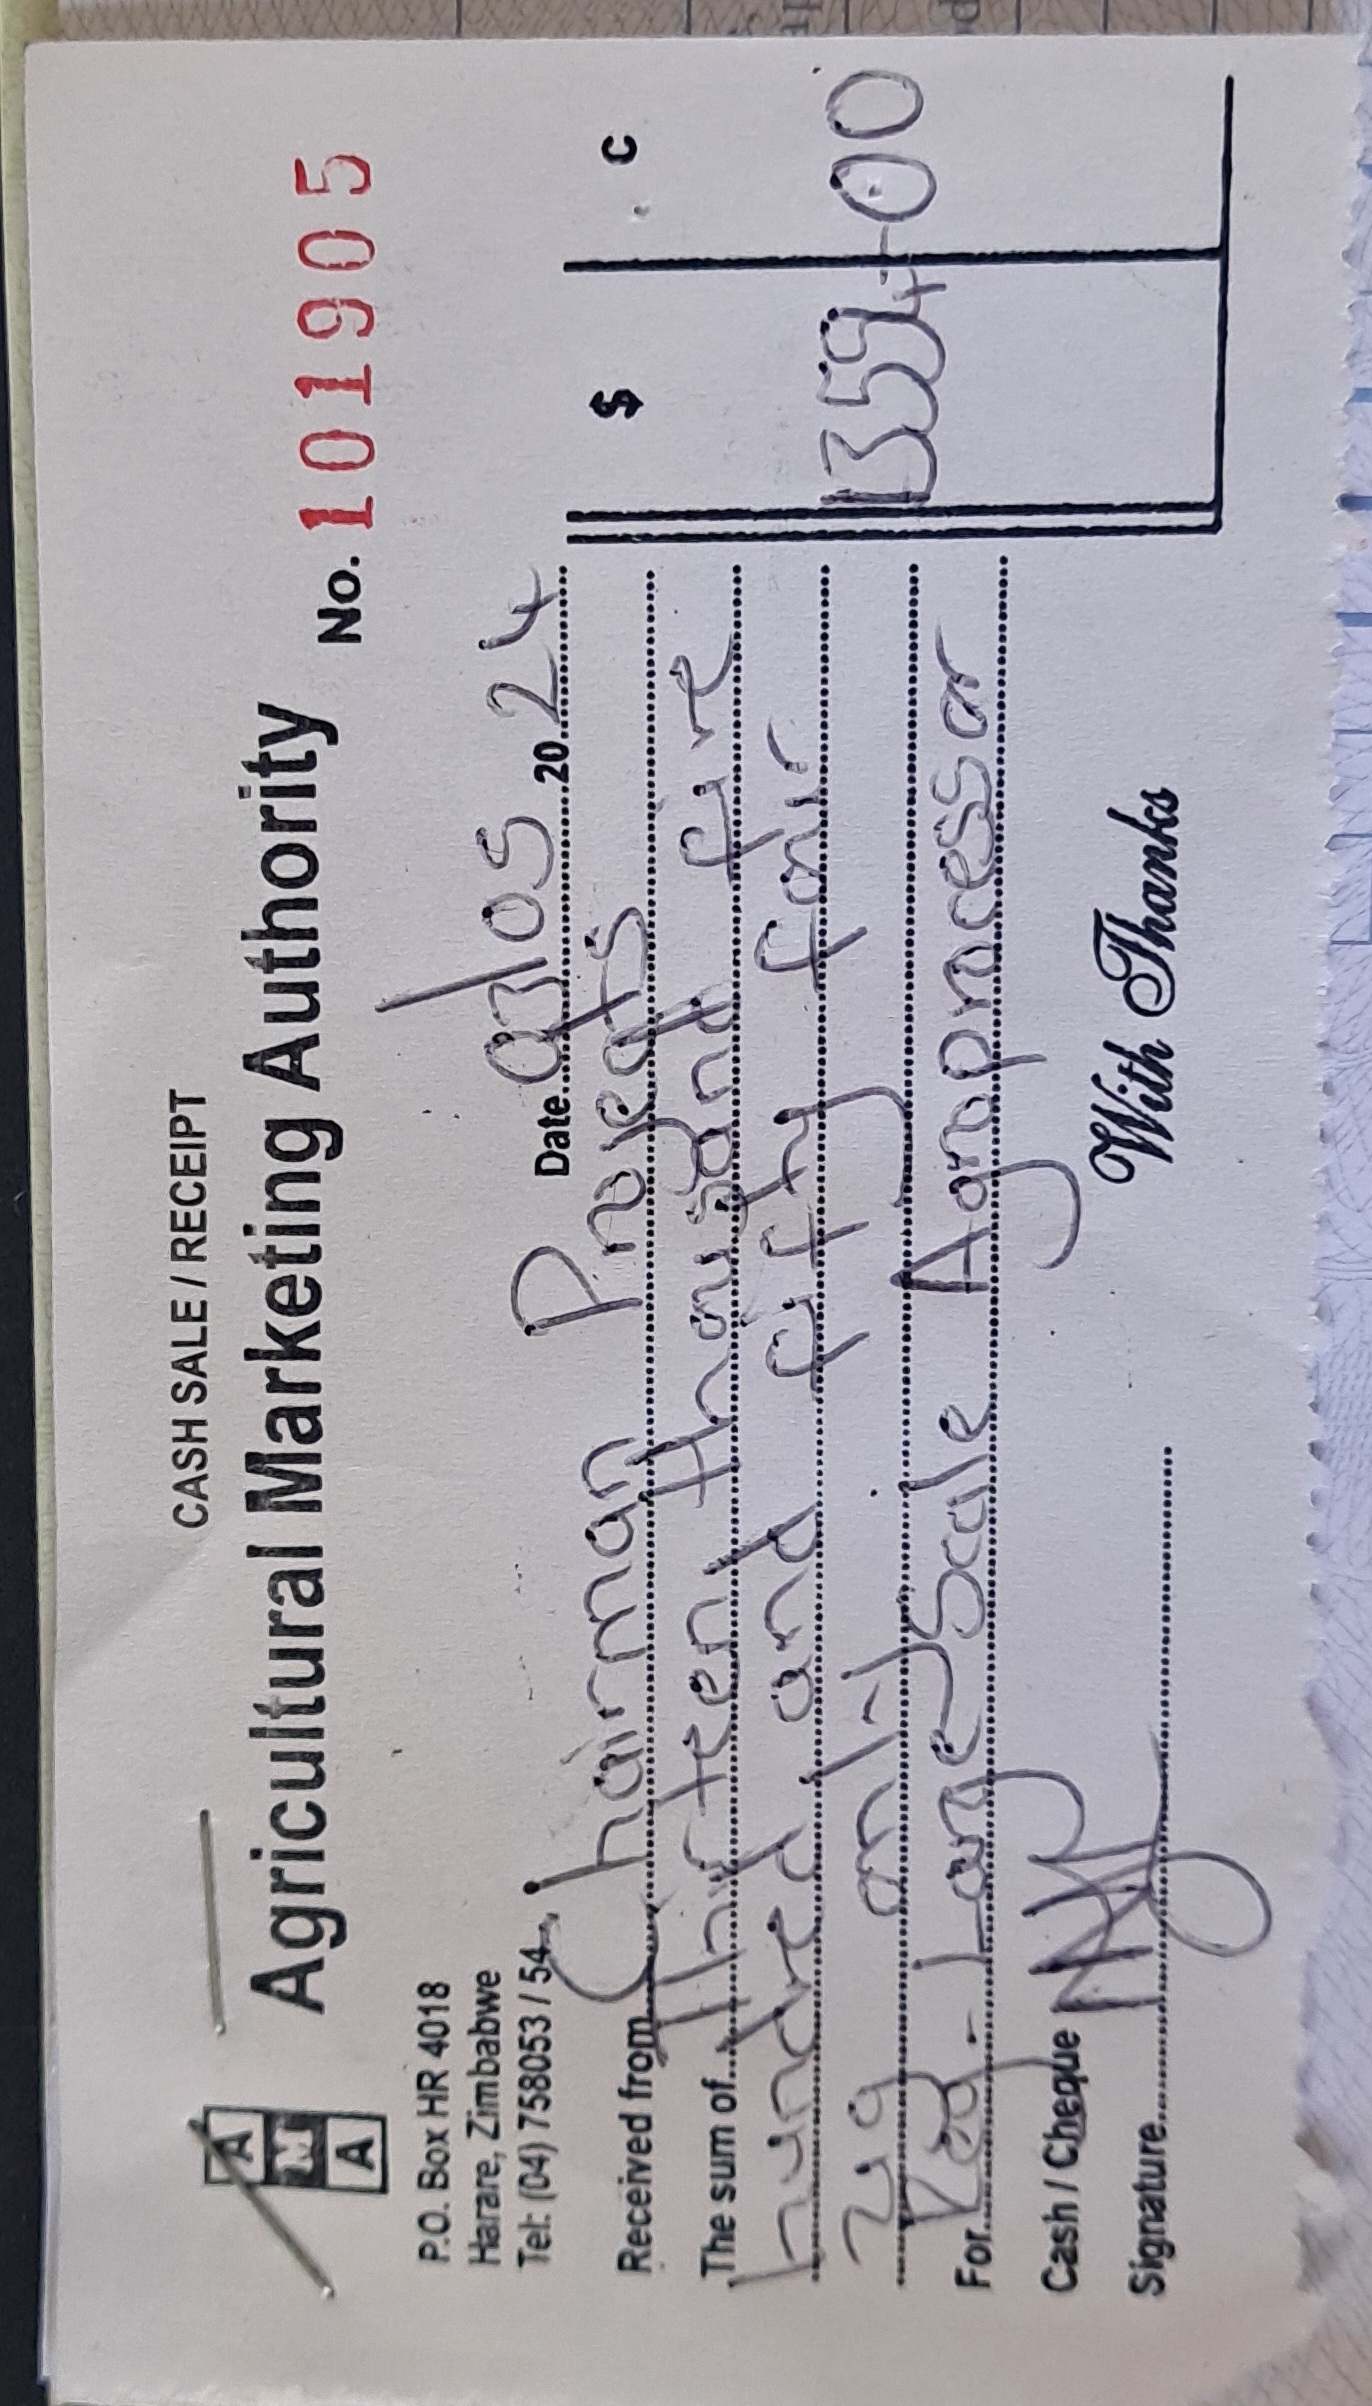 CASH SALE / RECEIPT
A
M
A
Agricultural Marketing Authority
P.O. Box HR 4018
Harare, Zimbabwe
Tel: (04) 758053 / 54
No. 101905
Date 07/05 2024
Received from Chairman Proveats
The sum of Thirteen thousand five
hundred and fifty four
zig only
For Reg - Large Scale Agroprocessor
Cash / Cheque
Signature
With Thanks
$ C
13554-00